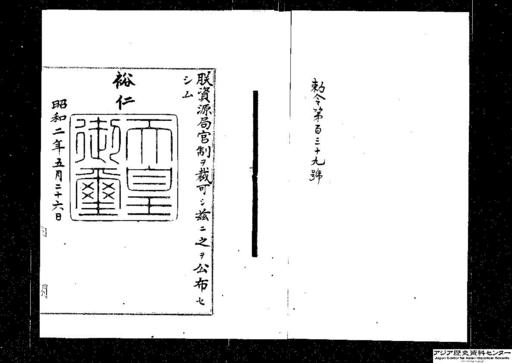 勅令第百三十九號
朕資源局官制ヲ裁可シ茲ニ之ヲ公布セ
シム
裕仁
天皇御璽
昭和二年五月二十六日
アジア歴史資料センター
Japan Center for Asian Historical Records